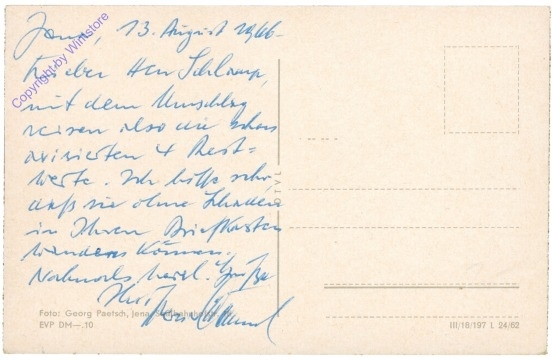 Jena, 13. August 1966
Lieber Herr
mit dem Umschlag
reisen also die schon
avisierten 4 Rest-
werte. Ich hoffe sehr,
daß sie ohne Schaden
in Ihren Briefkasten
können.
Nochmals herzl. Grüße
Ihr
Foto: Georg Paetsch, Jena
EVP DM —.10
III/18/197 L 24/62
Copyright by Wintstore